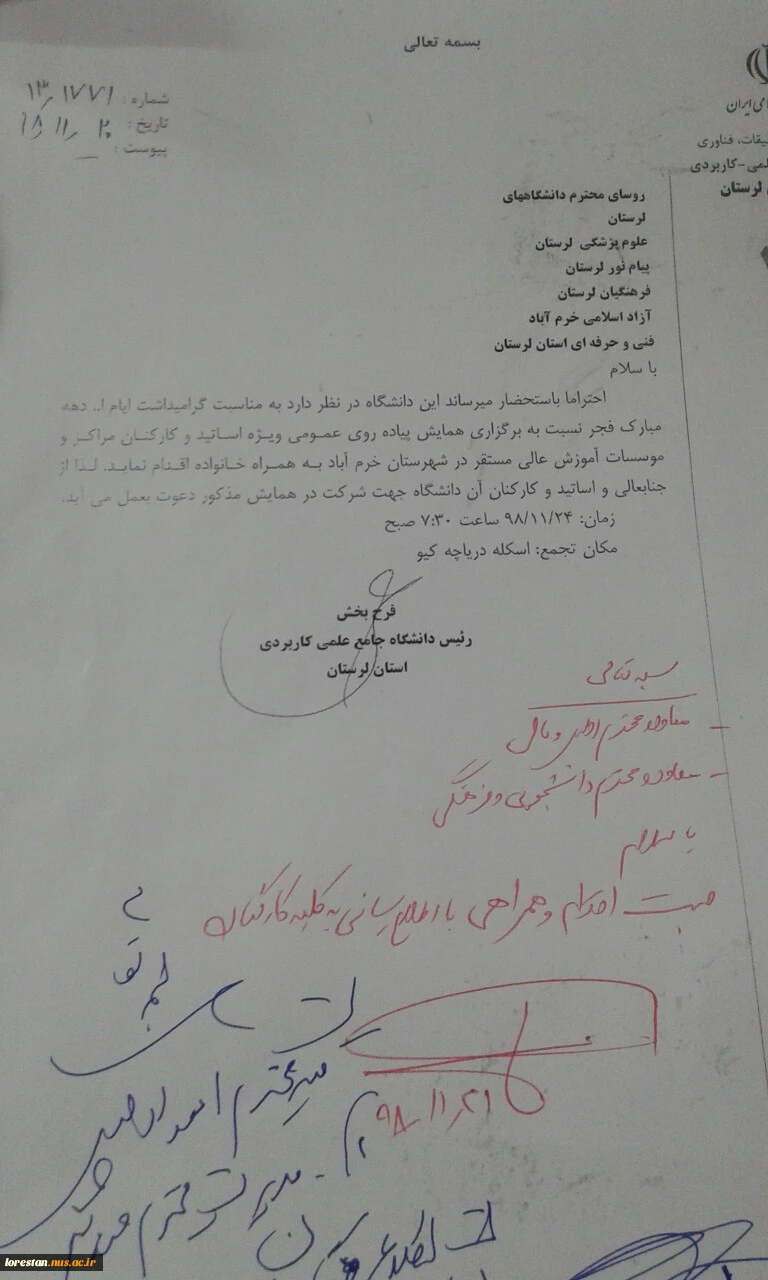 بسمه تعالی
شماره: ۱۳/۱۷۷۱
تاریخ: ۹۸/۱۱/۲۰
پیوست: —
ای ایران
یقات، فناوری
لمی-کاربردی
لرستان
روسای محترم دانشگاههای
لرستان
علوم پزشکی لرستان
پیام نور لرستان
فرهنگیان لرستان
آزاد اسلامی خرم آباد
فنی و حرفه ای استان لرستان
با سلام
احتراما باستحضار میرساند این دانشگاه در نظر دارد به مناسبت گرامیداشت ایام ا.. دهه
مبارک فجر نسبت به برگزاری همایش پیاده روی عمومی ویژه اساتید و کارکنان مراکز و
موسسات آموزش عالی مستقر در شهرستان خرم آباد به همراه خانواده اقدام نماید. لذا از
جنابعالی و اساتید و کارکنان آن دانشگاه جهت شرکت در همایش مذکور دعوت بعمل می آید.
زمان: ۹۸/۱۱/۲۴ ساعت ۷:۳۰ صبح
مکان تجمع: اسکله دریاچه کیو
فرح بخش
رئیس دانشگاه جامع علمی کاربردی
استان لرستان
بسمه تعالی
- معاونت محترم اداری و مالی
- معاونت محترم دانشجویی و فرهنگی
با سلام
جهت اقدام و همراهی با اطلاع رسانی به کلیه کارکنان
۹۸/۱۱/۲۱
lorestan.nus.ac.ir